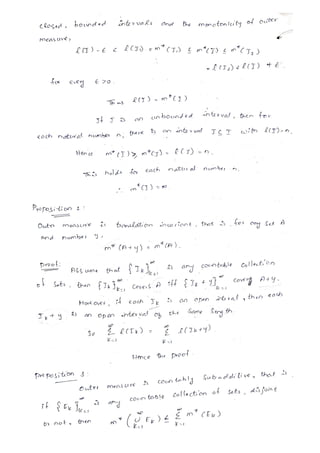 closed, bounded intervals and the monotonicity of outer
measure,
l(I) - ε < l(J1) = m*(J1) ≤ m*(I) ≤ m*(J2)
= l(J2) < l(I) + ε.
for every ε > 0.
Thus l(I) = m*(I)
If I is an unbounded interval, then for
each natural number n, there is an interval J ⊆ I with l(J) = n.
Hence m*(I) ≥ m*(J) = l(J) = n.
This holds for each natural number n.
∴ m*(I) = ∞.
Proposition 2:
Outer measure is translation invariant, that is, for any set A
and number y,
m*(A+y) = m*(A).
Proof:
Assume that {Ik}∞k=1 is any countable collection
of sets, then {Ik}∞k=1 covers A iff {Ik + y}∞k=1 covers A+y.
Moreover, if each Ik is an open interval, then each
Ik + y is an open interval of the same length.
So ∞Σk=1 l(Ik) = ∞Σk=1 l(Ik+y)
Hence the proof.
Proposition 3:
Outer measure is countably subadditive, that is
If {Ek}∞k=1 is any countable collection of sets, disjoint
or not, then m*(∞∪k=1 Ek) ≤ ∞Σk=1 m*(Ek)